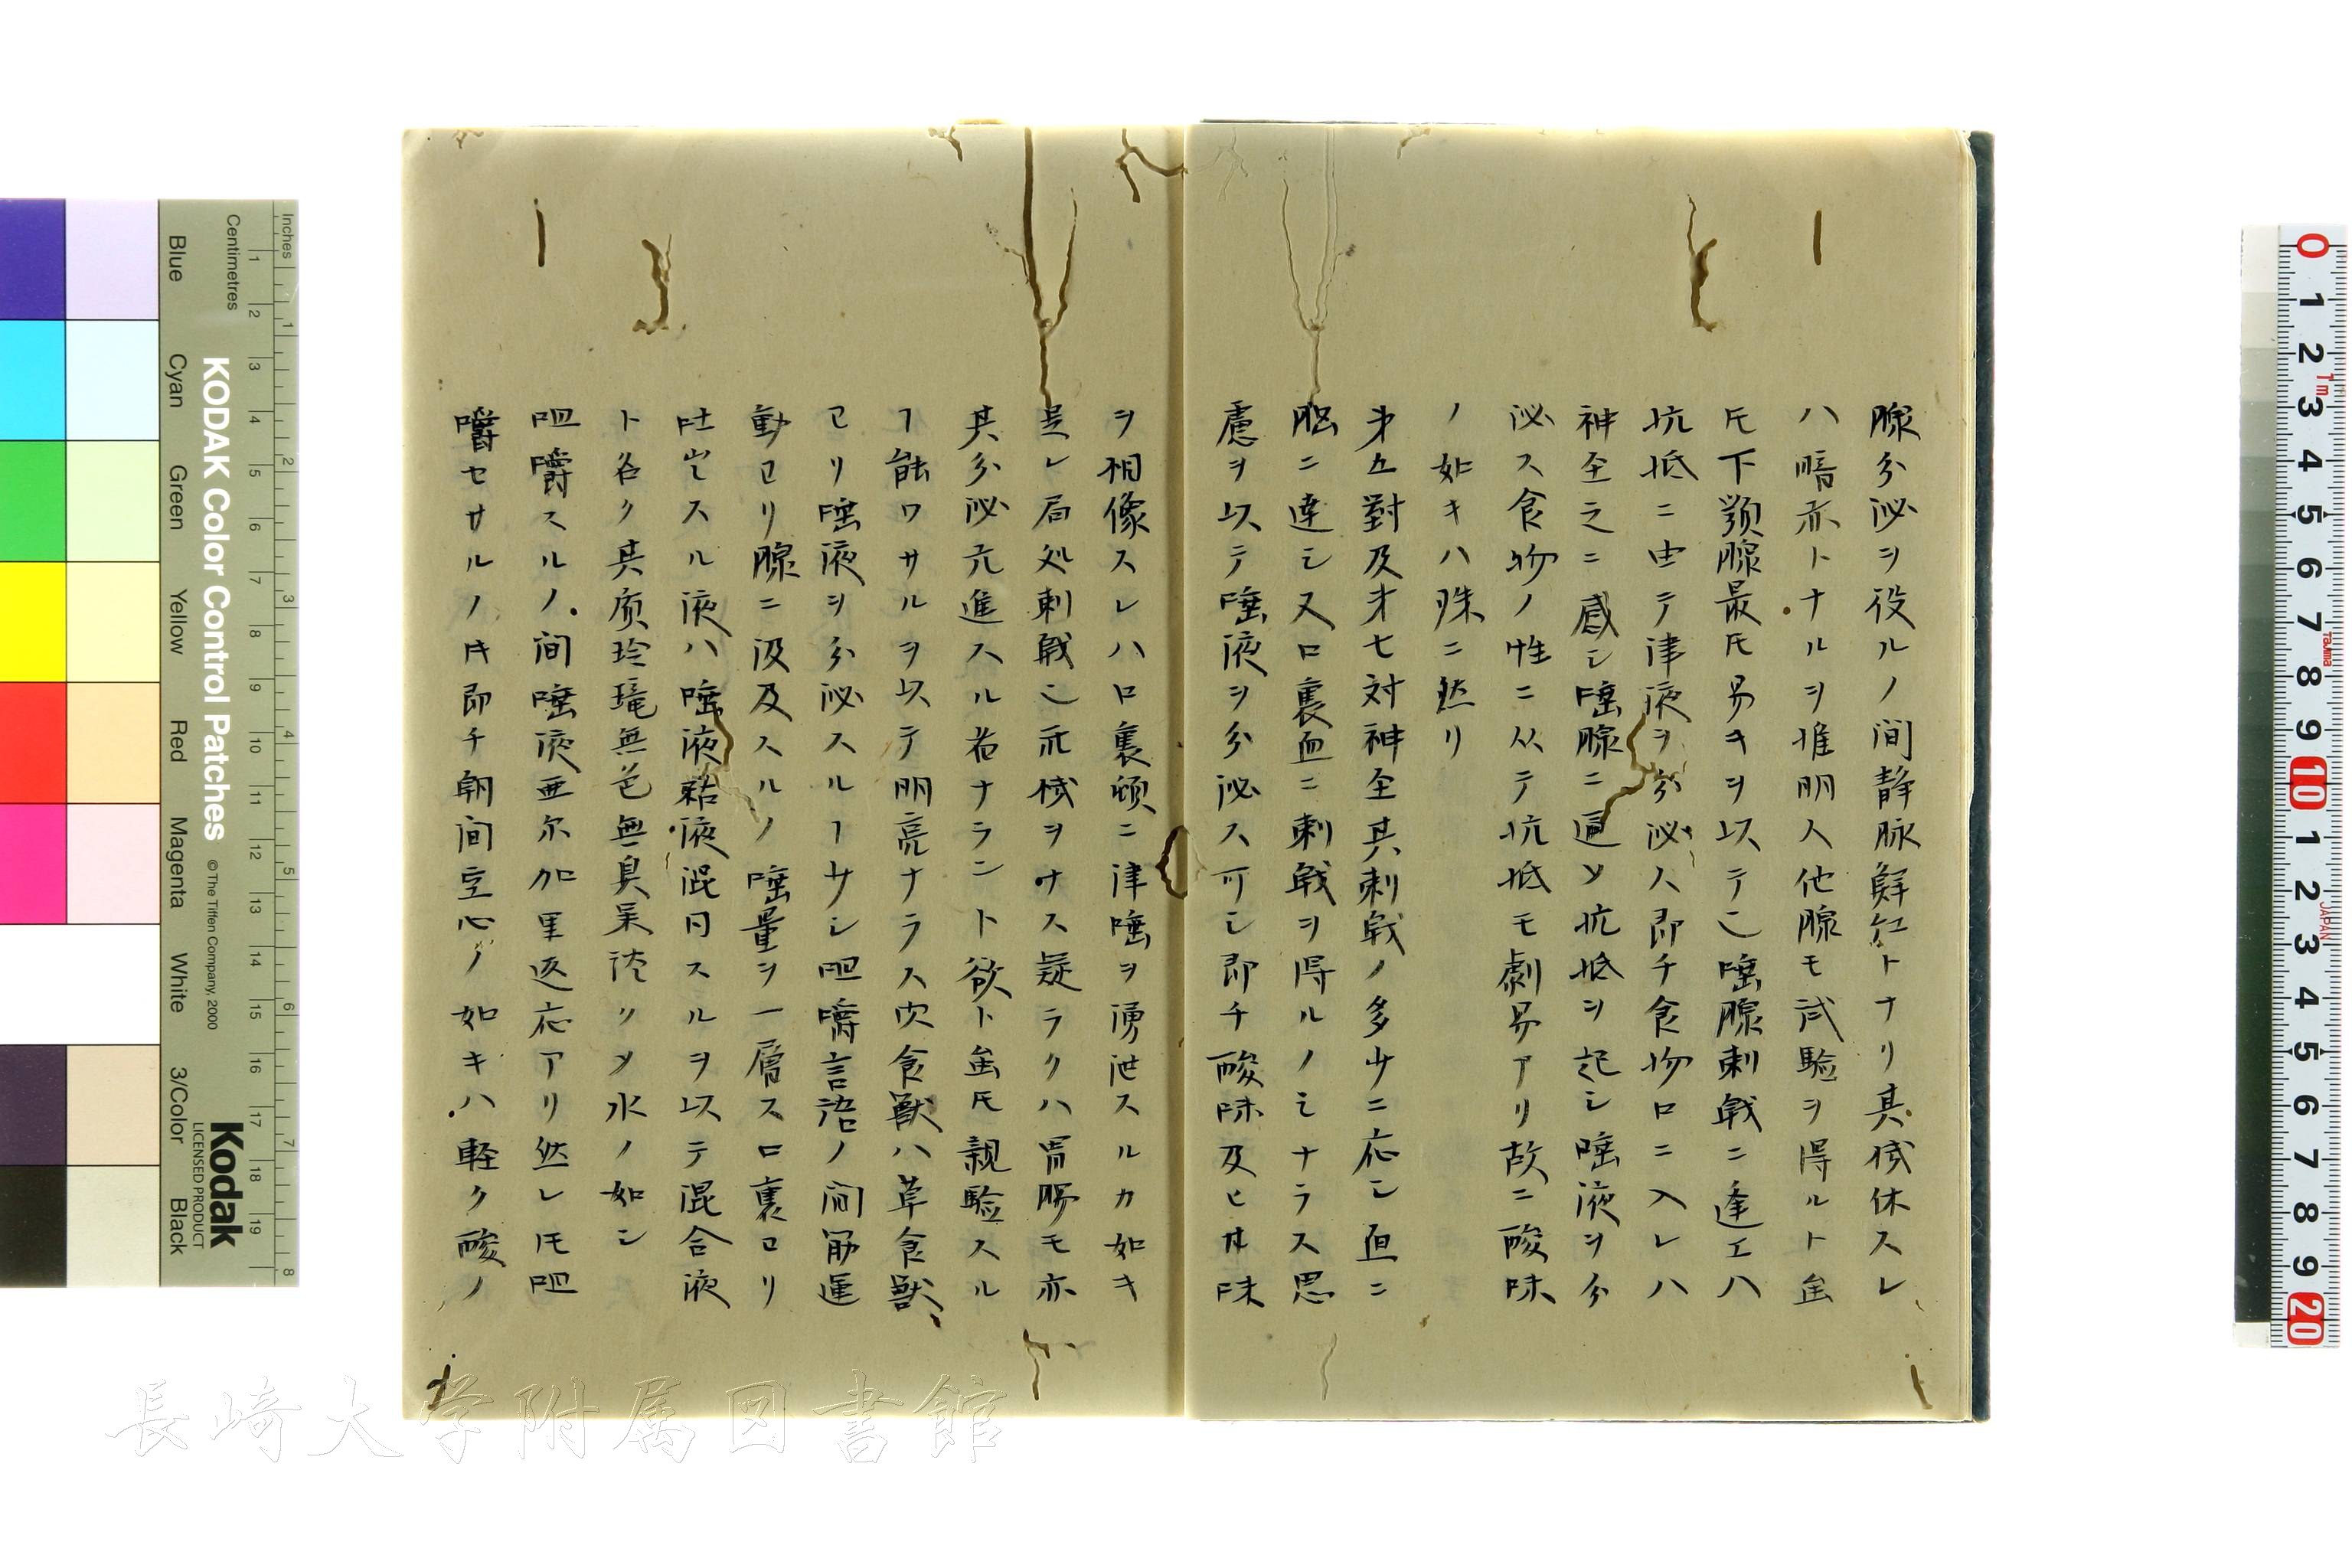 腺分泌ヲ役ルノ間静脉鮮紅トナリ其機休スレ
ハ暗赤トナルヲ推明人他腺モ試驗ヲ得ルト雖
𪜈下顎腺最𪜈易キヲ以テ乄唾腺刺戟ニ逢エハ
抗抵ニ由テ津液ヲ分泌人即チ食物口ニ入レハ
神全之ニ感シ唾腺ニ逼ソ抗抵ヲ起シ唾液ヲ分
泌ス食物ノ性ニ从テ抗抵モ劇易アリ故ニ酸味
ノ如キハ殊ニ然リ
㐧五對及㐧七対神全其刺戟ノ多少ニ応シ直ニ
腦ニ達シ又口裏血ニ刺戟ヲ得ルノミナラス思
慮ヲ以テ唾液ヲ分泌ス可シ即チ酸味及ヒ甘味
ヲ相像スレハ口裏頓ニ津唾ヲ湧泄スルカ如キ
是レ局処刺戟乄機ヲナス疑ラクハ胃腸モ亦
其分泌亢進スル者ナラント欲ト雖𪜈親驗スル
ヿ能ワサルヲ以テ明亮ナラス肉食獣ハ草食獣
ヨリ唾液ヲ分泌スルヿ少シ咀嚼言語ノ間筋運
動ヨリ腺ニ波及スルノ唾量ヲ一層ス口裏ヨリ
吐出スル液ハ唾液粘液混同スルヲ以テ混合液
ト名ク其質玲瓏無色無臭呆淡リメ水ノ如シ
咀嚼スルノ間唾液亜尓加里返応アリ然レ𪜈咀
嚼セサルノ𪜈即チ朝間空心ノ如キハ軽ク酸ノ
KODAK Color Control Patches
©The Tiffen Company, 2000
Kodak
LICENSED PRODUCT
Inches
Centimetres
Blue
Cyan
Green
Yellow
Red
Magenta
White
3/Color
Black
長崎大学附属図書館